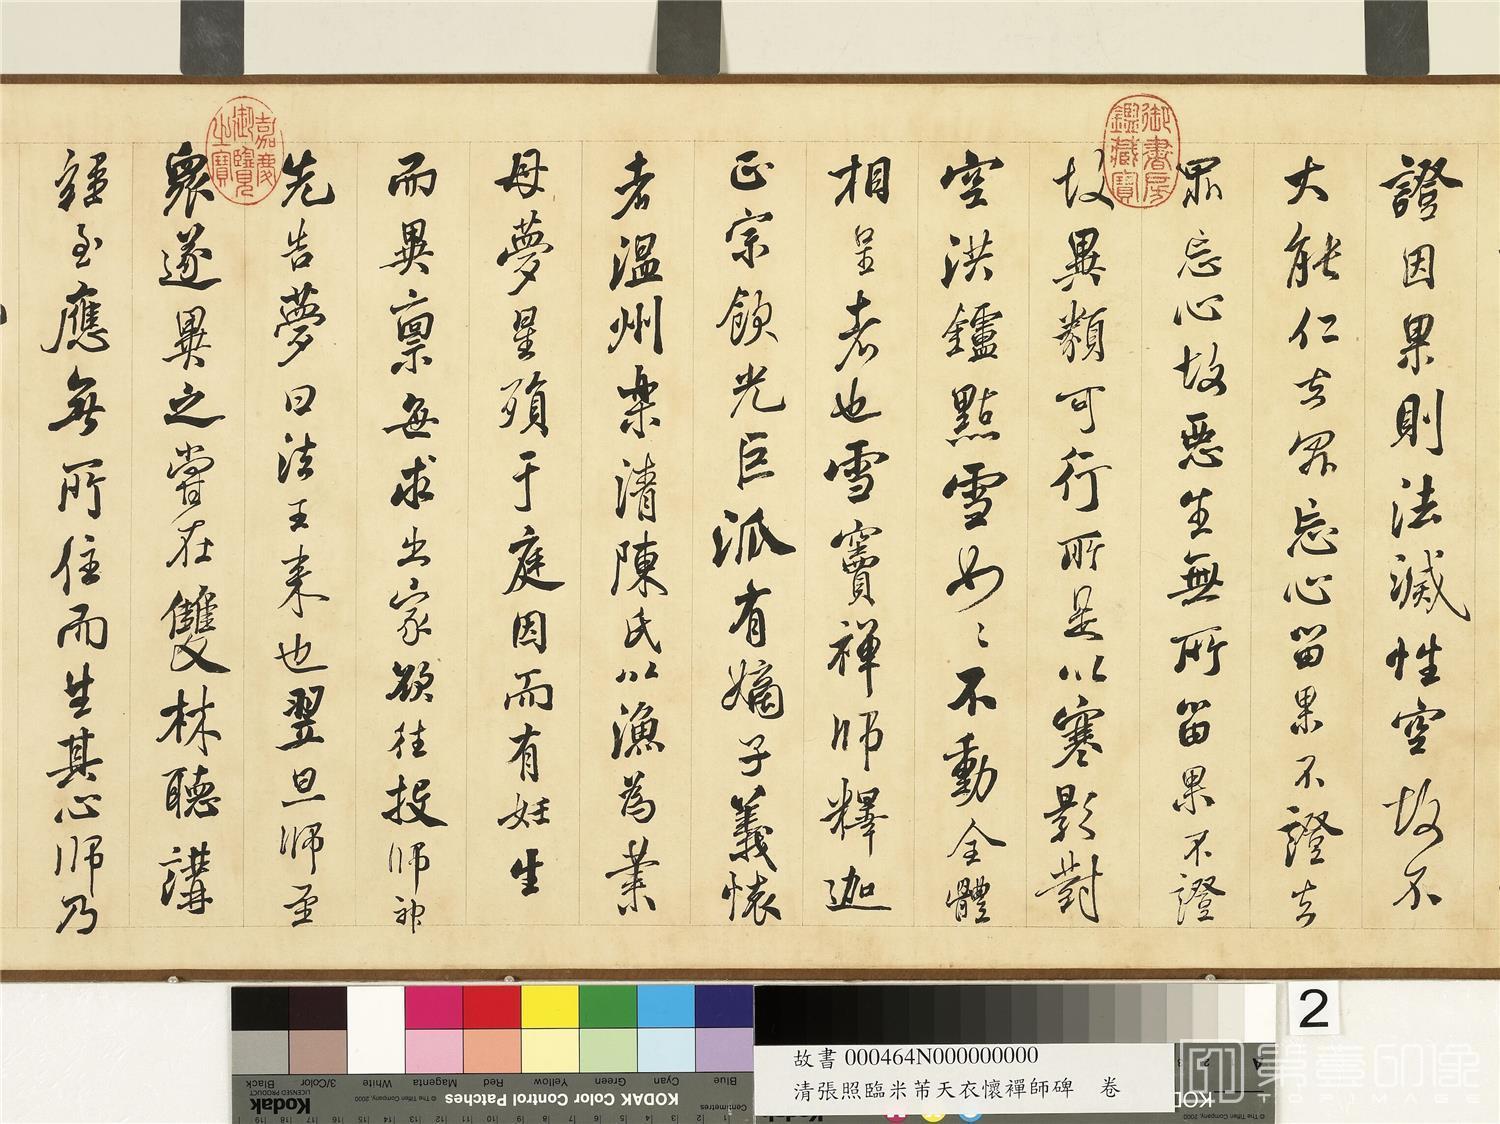 證因果則法滅性空故不
大能仁者眾忘心留果不證者
眾忘心故惡生無所留果不證
故異類可行所是以寒影對
空洪鑪點雪如如不動全體
相呈者也雪竇禪師釋迦
正宗飲光巨派有嫡子義懷
者溫州樂清陳氏以漁為業
母夢星殞于庭因而有妊生
而異禀每求出家欲往投師神
先告夢曰法王來也翌旦師至
眾遂異之嘗在雙林聽講
雜至應無所住而生其心師乃
御書房鑑藏寶
嘉慶御覽之寶
2
故書 000464N000000000
清張照臨米芾天衣懷禪師碑 卷
KODAK Color Control Patches
Blue Cyan Green Yellow Red Magenta White 3/Color Black
Kodak
LICENSED PRODUCT
© The Tiffen Company, 2000
Centimetres
KODAK
© The Tiffen Company, 2000
典藏印像
TOPIMAGE